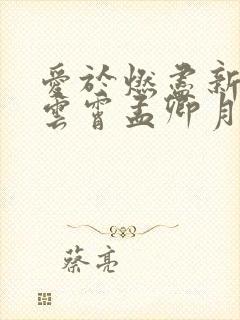 愛於燃盡新
雲霄孟卿月
蔡亮